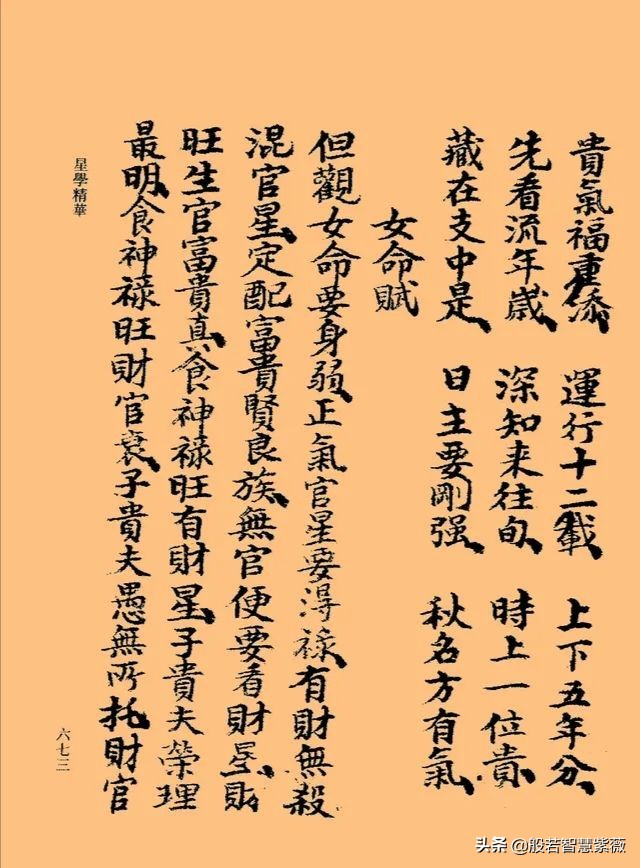 貴氣福重添、運行十二載、上下五年分、
先看流年歲、深知来往旬、時上一位貴、
藏在支中是、日主要剛强、秋名方有氣、
女命賦
但觀女命要身弱、正氣官星要得祿、有財無殺
混官星、定配富貴賢良族、無官便要看財星、財
旺生官富貴真、食神禄旺有財星、子貴夫榮理
最明、食神禄旺財官衰、子貴夫愚無所托、財官
星學精華
六七三
头条 @般若智慧紫薇